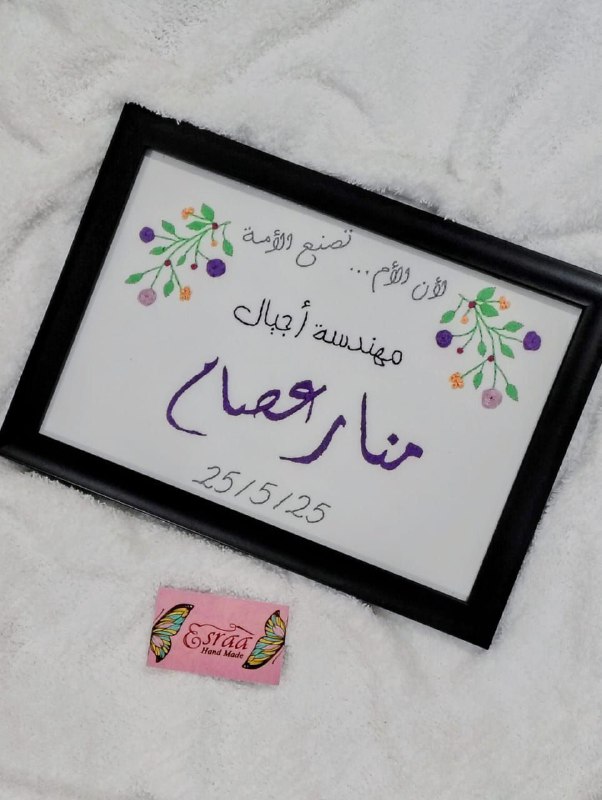 لأن الأم... تصنع الأمة
مهندسة أجيال
منار عصام
25/5/25
Esraa
Hand Made